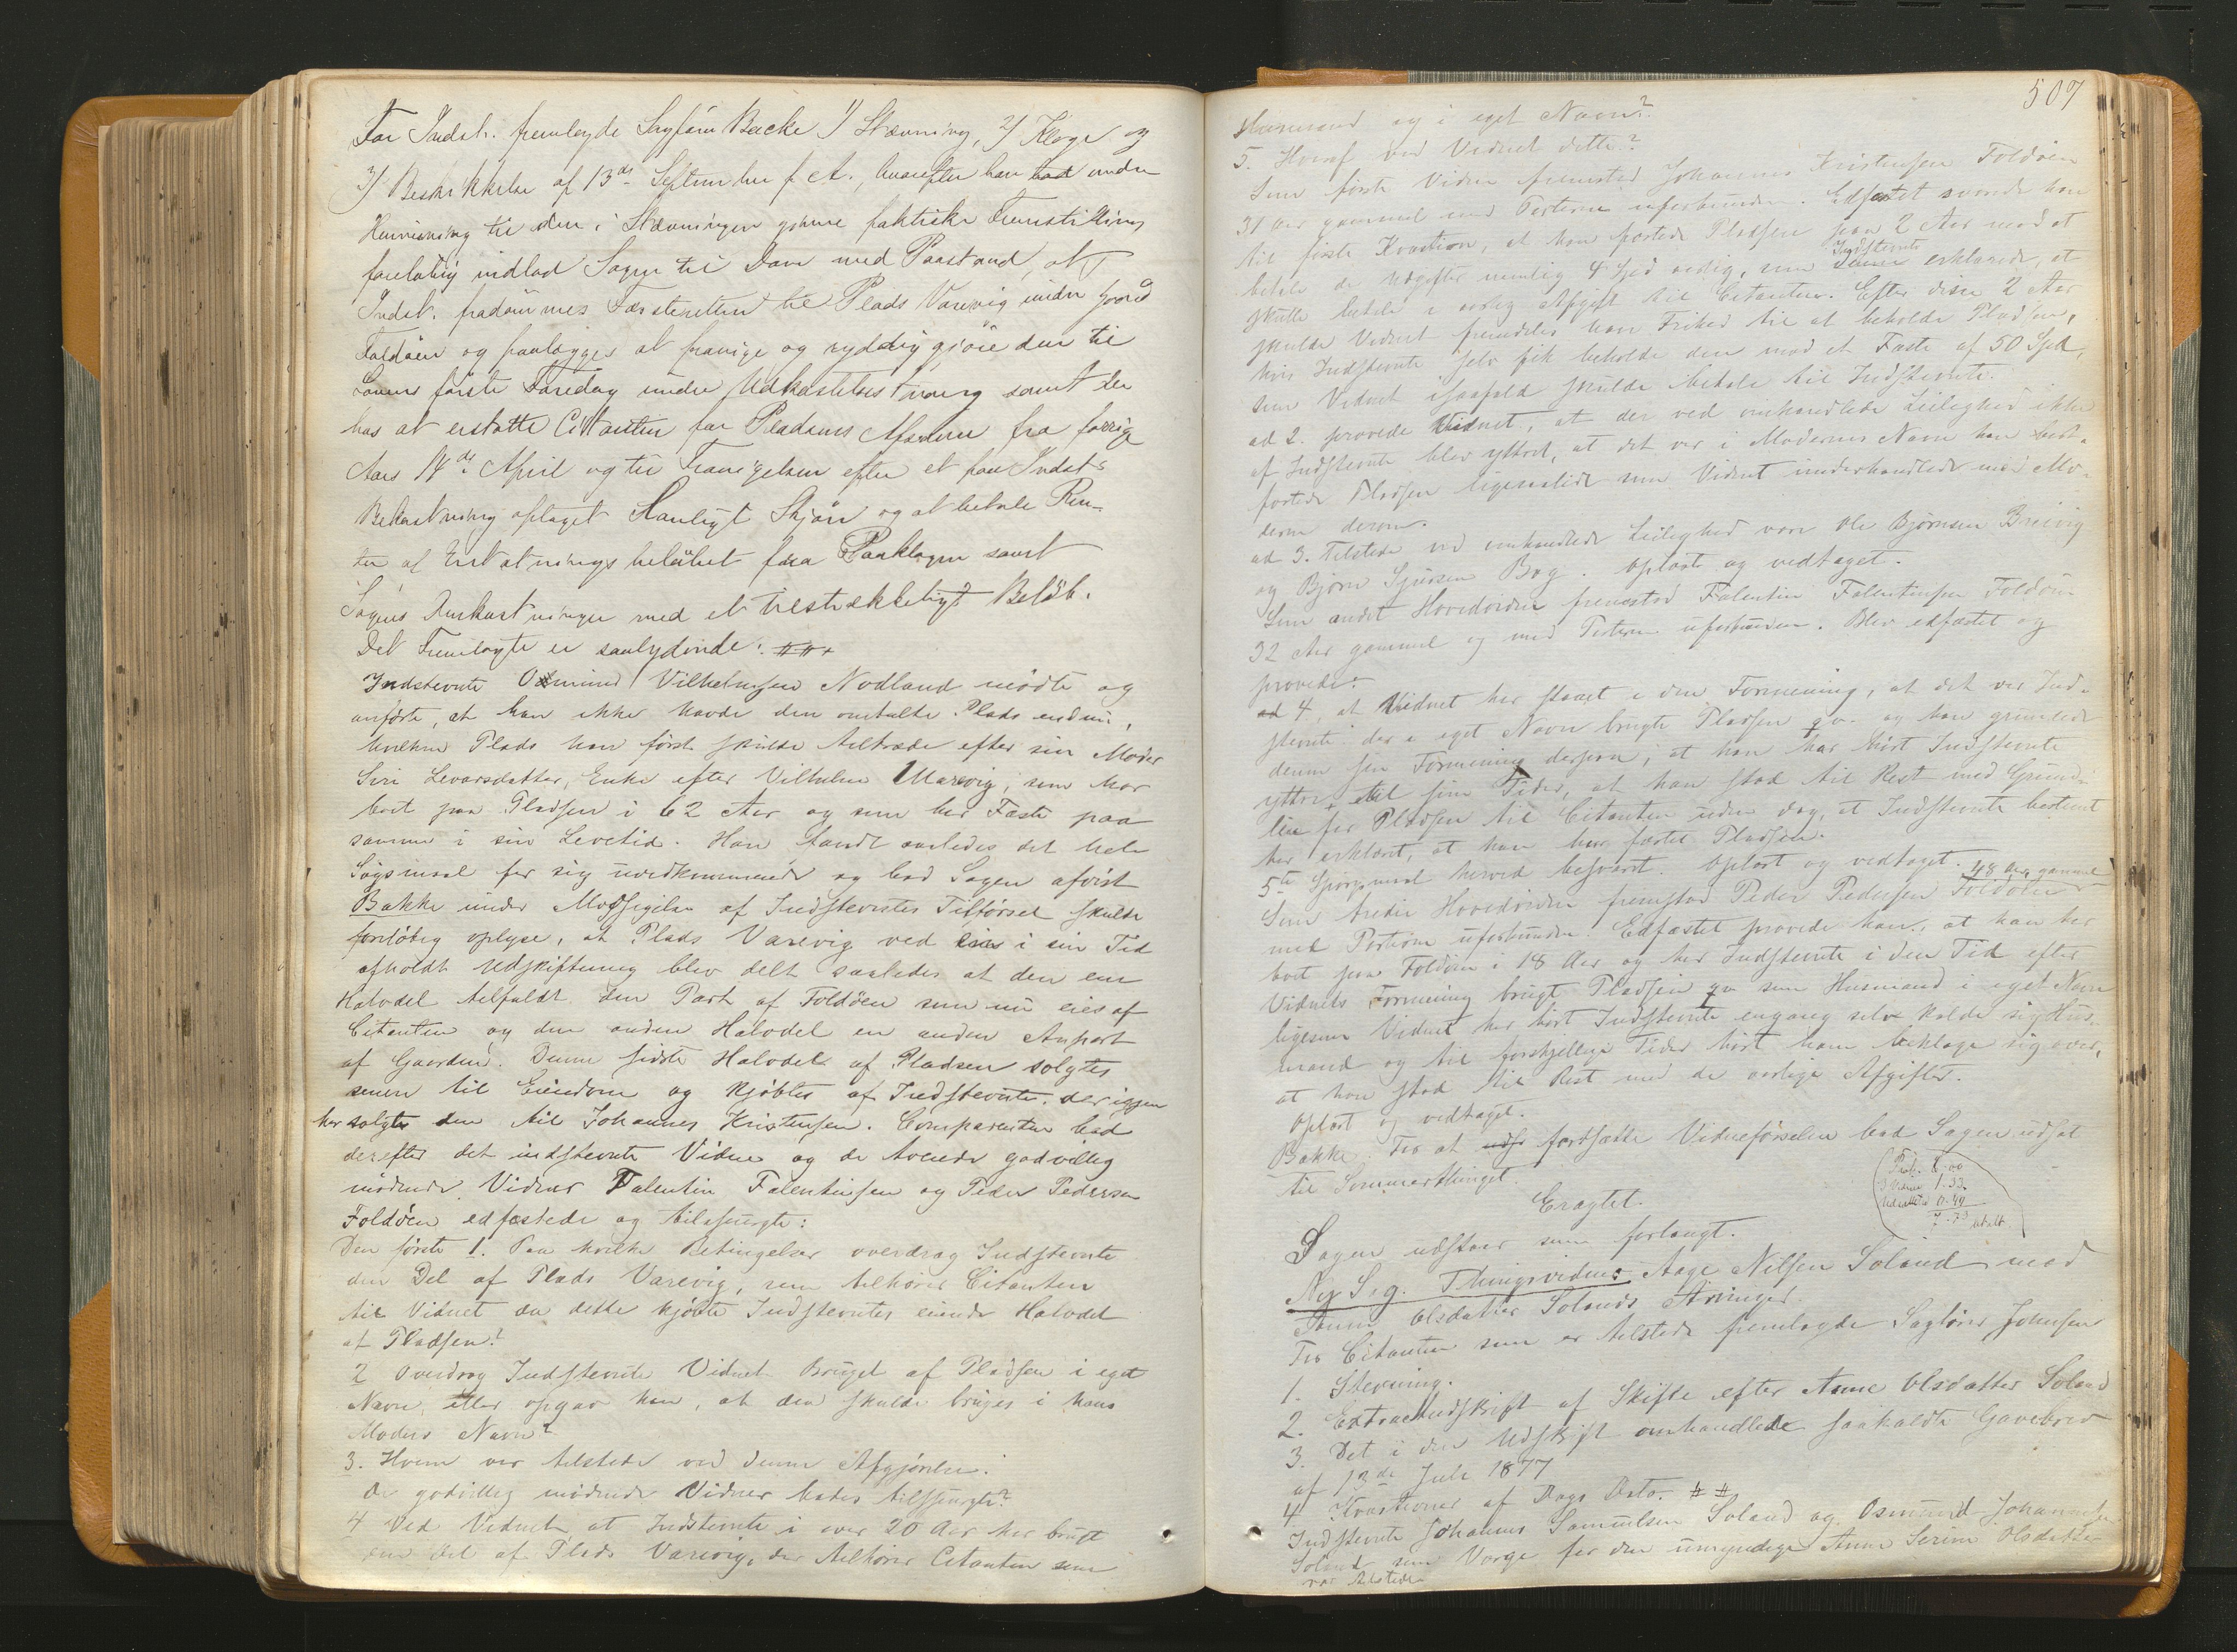 For Indst. fremlagde Sagför Backe 1/ Stævning, 2/ Klage og
3/ Beskikkelse af 13de September f. A., hvorefter han bad under
Henvisning til den i Stævningen givne faktiske Fremstilling
foreløbig indlod Sagen til Dom med Paastand, at
Indst. fradømmes Fæsteretten til Plads Varevig under Gaard
Foldöen og paalægges at fravige og ryddiggjöre den til
Lovens förste Faredag under Udkastelses Tvang samt der
hos at erstatte Citanten for Pladsens Afsavn fra forrige
Aars 14de April og til Fravigelsen efter et paa Indsts
Bekostning optaget Lovligt Skjön og at betale Ren-
ter af Erstatningsbelöbet fra Paaklagen samt
Sagens Omkostninger med et tilstrækkeligt Belöb.
Det Fremlagte er saalydende: ##.
Indstevnte Osmund Vilhelmsen Nodland mödte og
anförte, at han ikke havde den omtalte Plads endnu,
hvilken Plads han först skulde tiltræde efter sin Moder
Siri Levarsdatter, Enke efter Vilhelm Warevig, som har
boet paa Pladsen i 62 Aar og som har Fæste paa
samme i sin Levetid. Han fandt saaledes det hele
Sögsmaal for sig uvedkommende og bad Sagen afvist
Bakke under Modsigelse af Indstevntes Tilförsel skulde
foreløbig oplyse, at Plads Varevig ved i sin Tid
afholdt Udskiftning blev delt saaledes at den ene
Halvdel tilfaldt den Part af Foldöen som nu eies af
Citanten og den anden Halvdel en anden Anpart
af Gaarden. Denne sidste Halvdel af Pladsen solgtes
senere til Eiendom og kjöbtes af Indstevnte, der igjen
har solgt den til Johannes Kristensen. Comparenten bad
derefter det indstevnte Vidne og de tvende godvillig
mödende Vidner Falentin Falentinsen og Peder Pedersen
Foldöen edfæstede og tilspurgte:
Den förste 1. Paa hvilke Betingelser overdrog Indstevnte
den Del af Plads Varevig, som tilhörer Citanten
til Vidnet da dette kjöbte Indstevntes eiende Halvdel
af Pladsen?
2 Overdrog Indstevnte Vidnet Bruget af Pladsen i eget
Navn, eller opgav han, at den skulde bruges i hans
Moders Navn?
3. Hvem var tilstede ved denne Afgjörelse.
De godvillig mödende Vidner bedes tilspurgte?
4 Ved Vidnet at Indstevnte i over 20 Aar har brugt
den Del af Plads Varevig, der tilhörer Citanten som
507
Husmand og i eget Navn?
5. Hvoraf ved Vidnet dette?
Som förste Vidne fremstod Johannes Kristensen Foldöen
31 Aar gammel med Parterne uforbunden. Edfæstet svarede han
til förste Kvæstion, at han fæstede Pladsen paa 2 Aar mod at
betale de Udgifter nemlig 4 Spd aarlig, som Indstevnte erklærede, at
skulle betale i aarlig Afgift til Citanten. Efter disse 2 Aar
skulde Vidnet fremdeles have Frihed til at beholde Pladsen,
hvis Indstevnte selv fik beholde den mod et Fæste af 50 Spd,
som Vidnet isaafald skulde betale til Indstevnte.
ad 2. provede Vidnet, at der ved omhandlede Leilighed ikke
af Indstevnte blev yttret, at det var i Moderens Navn han bort-
fæstede Pladsen ligesaalidt som Vidnet underhandlede med Mo-
deren derom.
ad 3. Tilstede ved omhandlede Leilighed vare Ole Björnsen Breivig
og Björn Sjursen Bog. Oplæst og vedtaget.
Som andet Hovedvidne fremstod Falentin Falentinsen Foldöen
32 Aar gammel og med Parterne uforbunden. Blev edfæstet og
provede:
ad 4, at Vidnet har staaet i den Formening, at det var Ind-
stevnte der i eget Navn brugte Pladsen qv. og han grundede
denne sin Formening derpaa, at han har hört Indstevnte
yttre til sine Tider, at han stod til Rest med Grund-
leie for Pladsen til Citanten uden dog, at Indstevnte bestemt
har erklæret, at han har fæstet Pladsen.
5te Spörgsmaal herved besvaret. Oplæst og vedtaget.
Som tredie Hovedvidne fremstod Peder Pedersen Foldöen 48 Aar gammel
med Parterne uforbunden. Edfæstet provede han, at han har
boet paa Foldöen i 18 Aar og har Indstevnte i den Tid efter
Vidnets Formening brugt Pladsen qv som Husmand i eget Navn
ligesom Vidnet har hört Indstevnte engang selv kalde sig Hus-
mand og til forskjellige Tider hört ham beklage sig over,
at han stod til Rest med de aarlige Afgifter.
Oplæst og vedtaget.
Bakke For at fortsætte Vidneförselen bad Sagen udsat
til Sommerthinget.
Eragtet.
Sagen udstaar som forlangt.
1.33
0.40
betalt.
Ny Sag. Thingsvidne: Aage Nilsen Soland mod
Anne Olsdatter Solands Arvinger.
For Citanten som er tilstede fremlagde Sagförer Johnsen
1. Stevning.
2. Extractudskrift af Skifte efter Anne Olsdatter Soland
3. Det i den Udskrift omhandlede saakaldte Gavebrev
af 13de Juli 1877
4 Kvæstioner af Dags Dato. ##
Indstevnte Johannes Samuelsen Soland og Osmund Johannesen
Soland som Verge for den umyndige Anne Serine Olsdatter
var tilstede